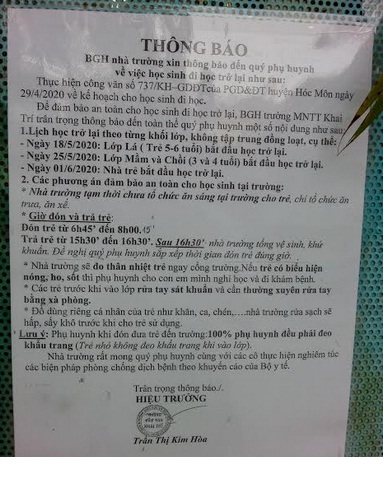 THÔNG BÁO
BGH nhà trường xin thông báo đến quý phụ huynh
về việc học sinh đi học trở lại như sau:
Thực hiện công văn số 737/KH–GDĐTcủa PGD&ĐT huyện Hóc Môn ngày
29/4/2020 về kế hoạch cho học sinh đi học.
Để đảm bảo an toàn cho học sinh đi học trở lại, BGH trường MNTT Khai
Trí trân trọng thông báo đến toàn thể quý phụ huynh một số nội dung như sau:
1.Lịch học trở lại theo từng khối lớp, không tập trung đông loạt, cụ thể:
- Ngày 18/5/2020: Lớp Lá ( Trẻ 5-6 tuổi) bắt đầu học trở lại.
- Ngày 25/5/2020: Lớp Mầm và Chồi (3 và 4 tuổi) bắt đầu học trở lại.
- Ngày 01/6/2020: Nhà trẻ bắt đầu học trở lại.
2. Các phương án đảm bảo an toàn cho học sinh tại trường:
* Nhà trường tạm thời chưa tổ chức ăn sáng tại trường cho trẻ, chỉ tổ chức ăn
trưa, ăn xế.
* Giờ đón và trả trẻ:
Đón trẻ từ 6h45' đến 8h00.
Trả trẻ từ 15h30' đến 16h30'. Sau 16h30' nhà trường tổng vệ sinh, khử
khuẩn. Đề nghị quý phụ huynh sắp xếp thời gian đón trẻ đúng giờ.
* Nhà trường sẽ đo thân nhiệt trẻ ngay cổng trường.Nếu trẻ có biểu hiện
nóng, ho, sốt thì phụ huynh cho con em mình nghỉ học và đi khám bệnh.
* Các trẻ trước khi vào lớp rửa tay sát khuẩn và cần thường xuyên rửa tay
bằng xà phòng.
* Đồ dùng riêng cá nhân của trẻ như khăn, ca, chén,....nhà trường rửa sạch sẽ
hấp, sấy khô trước khi cho trẻ sử dụng.
Lưu ý: Phụ huynh khi đón đưa trẻ đến trường:100% phụ huynh đều phải đeo
khẩu trang (Trẻ nhỏ không đeo khẩu trang khi vào lớp).
Nhà trường rất mong quý phụ huynh cùng với các cô thực hiện nghiêm túc
các biện pháp phòng chống dịch bệnh theo khuyến cáo của Bộ y tế.
Trân trọng thông báo./.
HIỆU TRƯỞNG
Trần Thị Kim Hòa